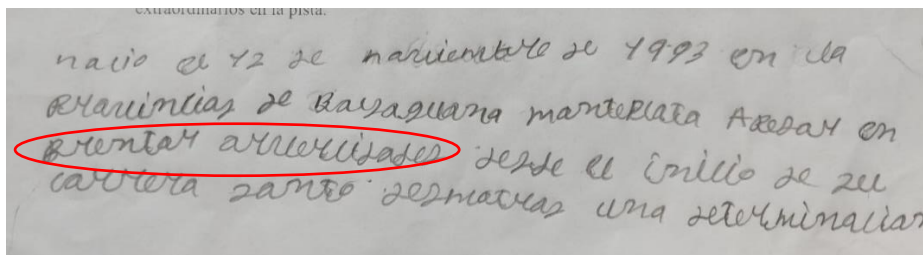 extraordinarios en la pista.
nacio el 12 de nawiembre de 1993 en la
Prawincias de Bayaguana manteplata Apesar en
frentar adwercidades desde el inicio de zu
carrera santo desmotras una determinacian